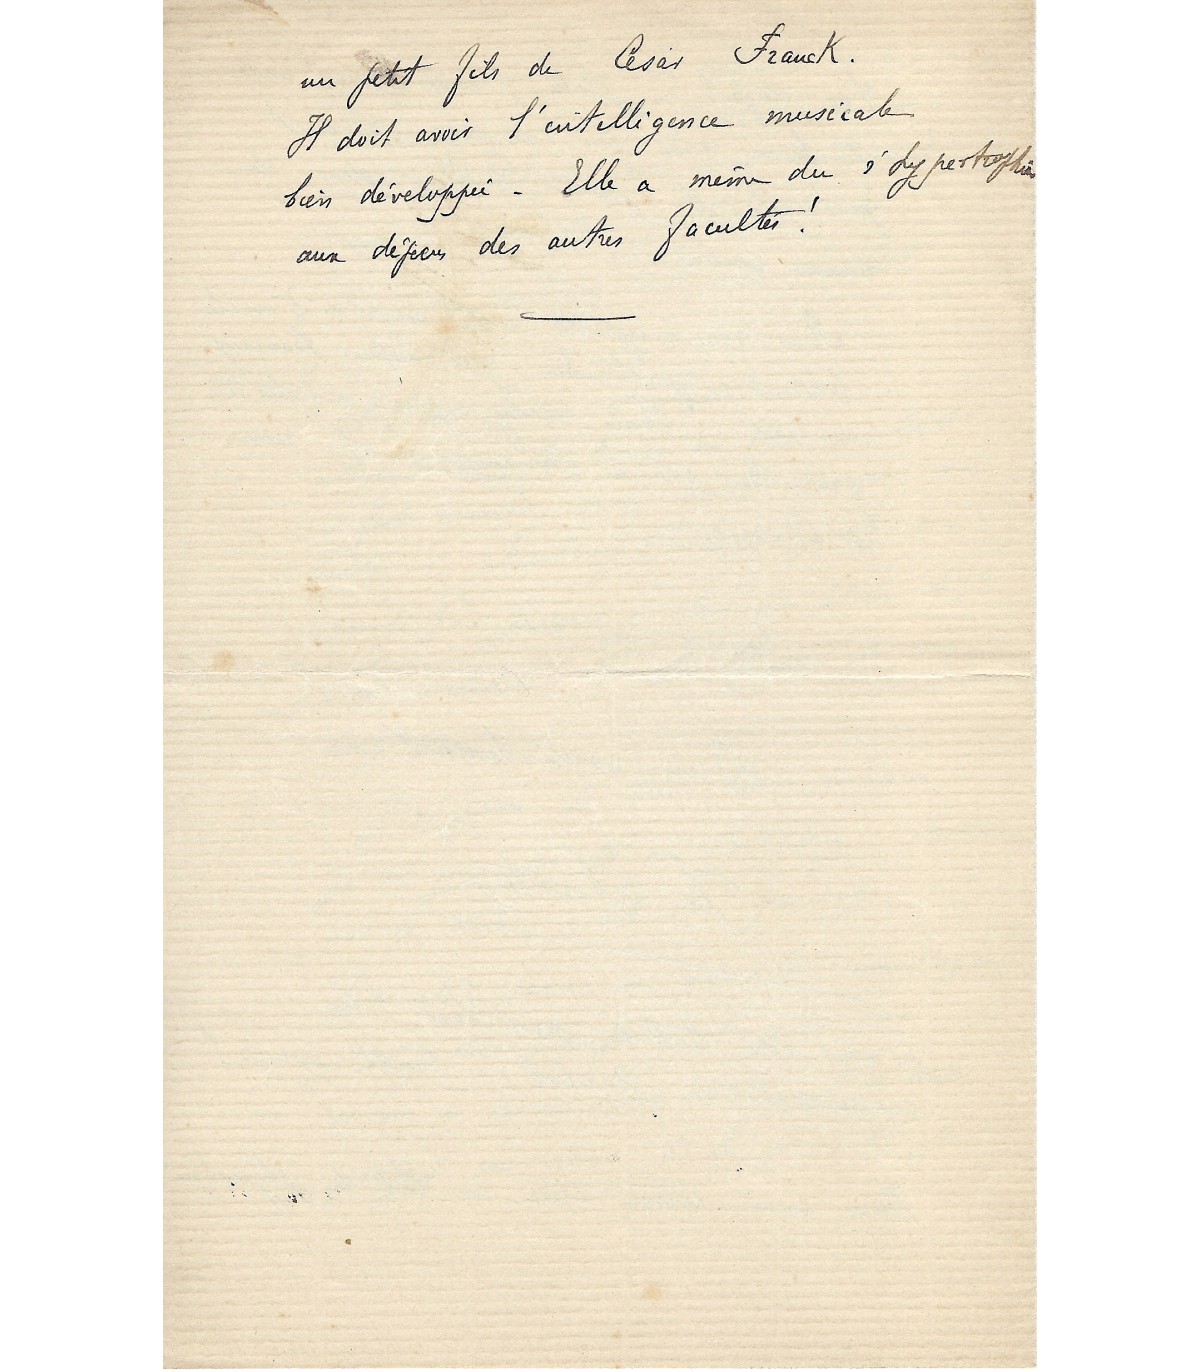 un petit fils de César Franck.
Il doit avoir l'intelligence musicale
bien développée - Elle a même du s'hypertrophier
aux dépens des autres facultés!